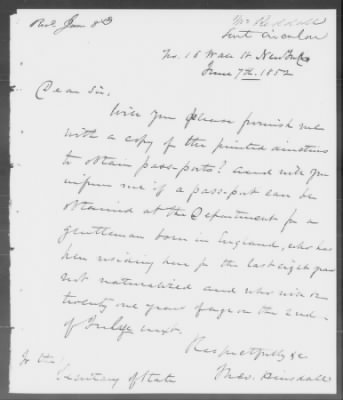 Recd June 8th
Mr Reddall
Sent Circular
No. 16 Wall St New York
June 7th 1852
Dear Sir,
Will you please furnish me
with a copy of the printed directions
to obtain passports? and will you
inform me if a passport can be
obtained at the Department for a
gentleman born in England, who has
been residing here for the last eight years
not naturalized and who will be
twenty one years of age on the 2nd
of July next.
Respectfully &c
Theo. Hinsdale
To the
Secretary of State